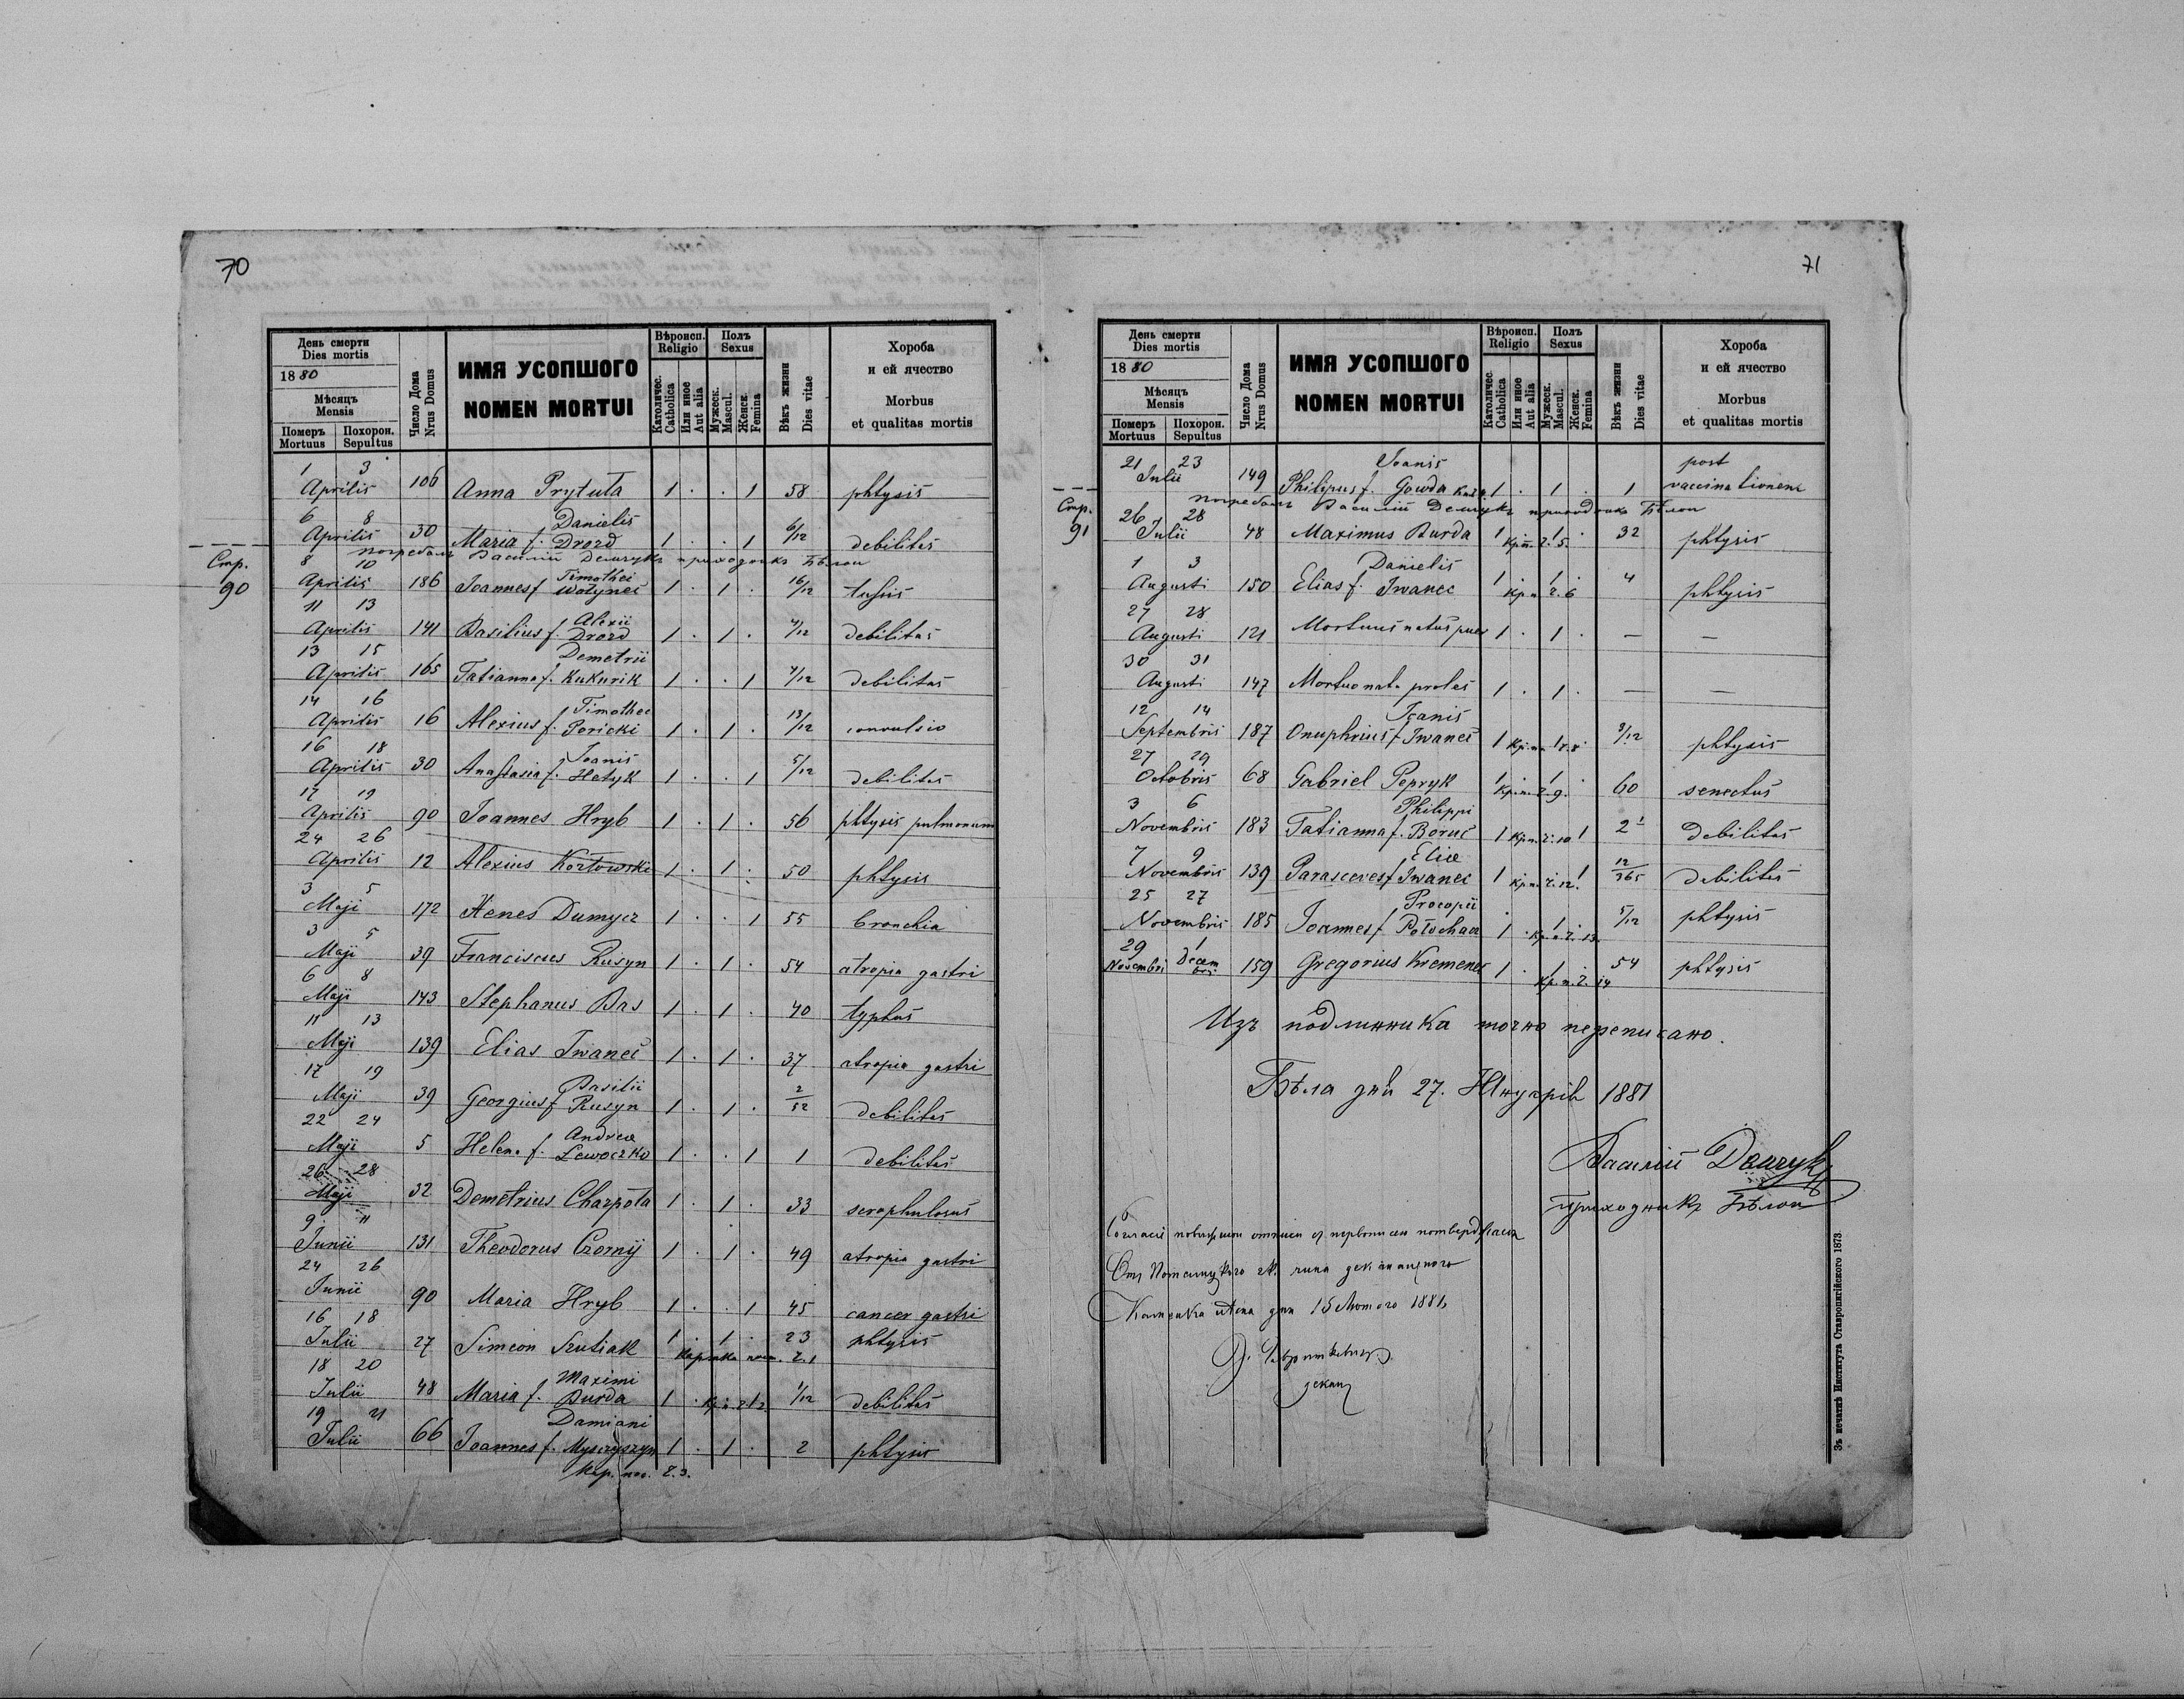 70
День смерти
Dies mortis
1880
Мѣсяцъ
Mensis
Померъ Похорон.
Mortuus Sepultus
Число Дома
Nrus Domus
ИМЯ УСОПШОГО
NOMEN MORTUI
Вѣроисп.
Religio
Католичес.
Catholica
Или иное
Aut alia
Полъ
Sexus
Мужеск.
Mascul.
Женск.
Femina
Вѣкъ жизни
Dies vitae
Хороба
и ей ячество
Morbus
et qualitas mortis
1 3 Aprilis 106 Anna Prytuta 1 . . 1 58 phtysis
6 8 Aprilis 30 Maria f. Danielis Drozd 1 . . 1 6/12 debilitas
погребалъ Василій приходникъ Бѣлои
Стр. 90
8 10 Aprilis 186 Joannes f. Timothei Wołyneć 1 . 1 . 16/12 tussis
11 13 Aprilis 141 Basilius f. Alexii Drozd 1 . 1 . 4/12 debilitas
13 15 Aprilis 165 Tatianna f. Demetrii Kukurik 1 . . 1 4/12 debilitas
14 16 Aprilis 16 Alexius f. Timothei Poricki 1 . 1 . 13/12 convulsio
16 18 Aprilis 30 Anastasia f. Joanis Hatyk 1 . . 1 5/12 debilitas
17 19 Aprilis 90 Joannes Hryb 1 . 1 . 56 phtysis pulmonum
24 26 Aprilis 12 Alexius Kozłowski 1 . 1 . 50 phtysis
3 5 Maji 172 Xenes Dumycz 1 . . 1 55 bronchia
3 5 Maji 39 Franciscus Rusyn 1 . 1 . 54 atropia gastri
6 8 Maji 143 Stephanus Bas 1 . 1 . 40 typhus
11 13 Maji 139 Elias Iwaneć 1 . 1 . 37 atropia gastri
17 19 Maji 39 Georgius f. Basilii Rusyn 1 . 1 . 2/52 debilitas
22 24 Maji 5 Helena f. Andreae Lewoczko 1 . . 1 1 debilitas
26 28 Maji 32 Demetrius Charpota 1 . 1 . 33 scrophulosus
9 11 Junii 131 Theodorus Czornij 1 . 1 . 49 atropia gastri
24 26 Junii 90 Maria Hryb 1 . . 1 45 cancer gastri
16 18 Julii 27 Simeon 1 . 1 . 23 phtysis
Картка ч. 1
18 20 Julii 48 Maria f. Maximi Burda 1 . 1 1/12 debilitas
19 21 Julii 66 Joannes f. Damiani Myszczyszyn 1 . 1 . 2 phtysis
Кар. пос. ч. 3.
71
День смерти
Dies mortis
1880
Мѣсяцъ
Mensis
Померъ Похорон.
Mortuus Sepultus
Число Дома
Nrus Domus
ИМЯ УСОПШОГО
NOMEN MORTUI
Вѣроисп.
Religio
Католичес.
Catholica
Или иное
Aut alia
Полъ
Sexus
Мужеск.
Mascul.
Женск.
Femina
Вѣкъ жизни
Dies vitae
Хороба
и ей ячество
Morbus
et qualitas mortis
21 23 Julii 149 Philipus f. Joanis Gowda 1 . 1 . 1 post vaccinationem
погребалъ Василій приходникъ Бѣлои
Стр. 91
26 28 Julii 48 Maximus Burda 1 кр. п. ч. 5. 1 . 32 phtysis
1 3 Augusti 150 Elias f. Danielis Iwanec 1 . 1 . кр. п. ч. 6 4 phtysis
27 28 Augusti 121 Mortuus natus puer 1 . 1 . — —
30 31 Augusti 147 Mortuo nata proles 1 . 1 . — —
12 14 Septembris 187 Onuphrius f. Joanis Iwaneć 1 кр. п. ч. 8 1 3/12 phtysis
27 29 Octobris 68 Gabriel Pepryk 1 . 1 . кр. п. ч. 9. 60 senectus
3 6 Novembris 183 Tatianna f. Philippi Boruć 1 кр. п. ч. 10 1 2 debilitas
7 9 Novembris 139 Parasceves f. Eliae Iwanec 1 кр. п. ч. 12. 1 12/365 debilitas
25 27 Novembris 185 Joannes f. Procopii 1 . 1 . кр. п. ч. 13. 5/12 phtysis
29 Novembri 1 Decembris 159 Gregorius Kremeneć 1 . 1 . кр. п. ч. 14 54 phtysis
Изъ подлинника точно переписано.
Бѣла дня 27. Януарія 1881
Василій
приходникъ Бѣлои
дня 15 Лютого 1881
декан
Зъ печатнѣ Института Ставропигійского 1873.